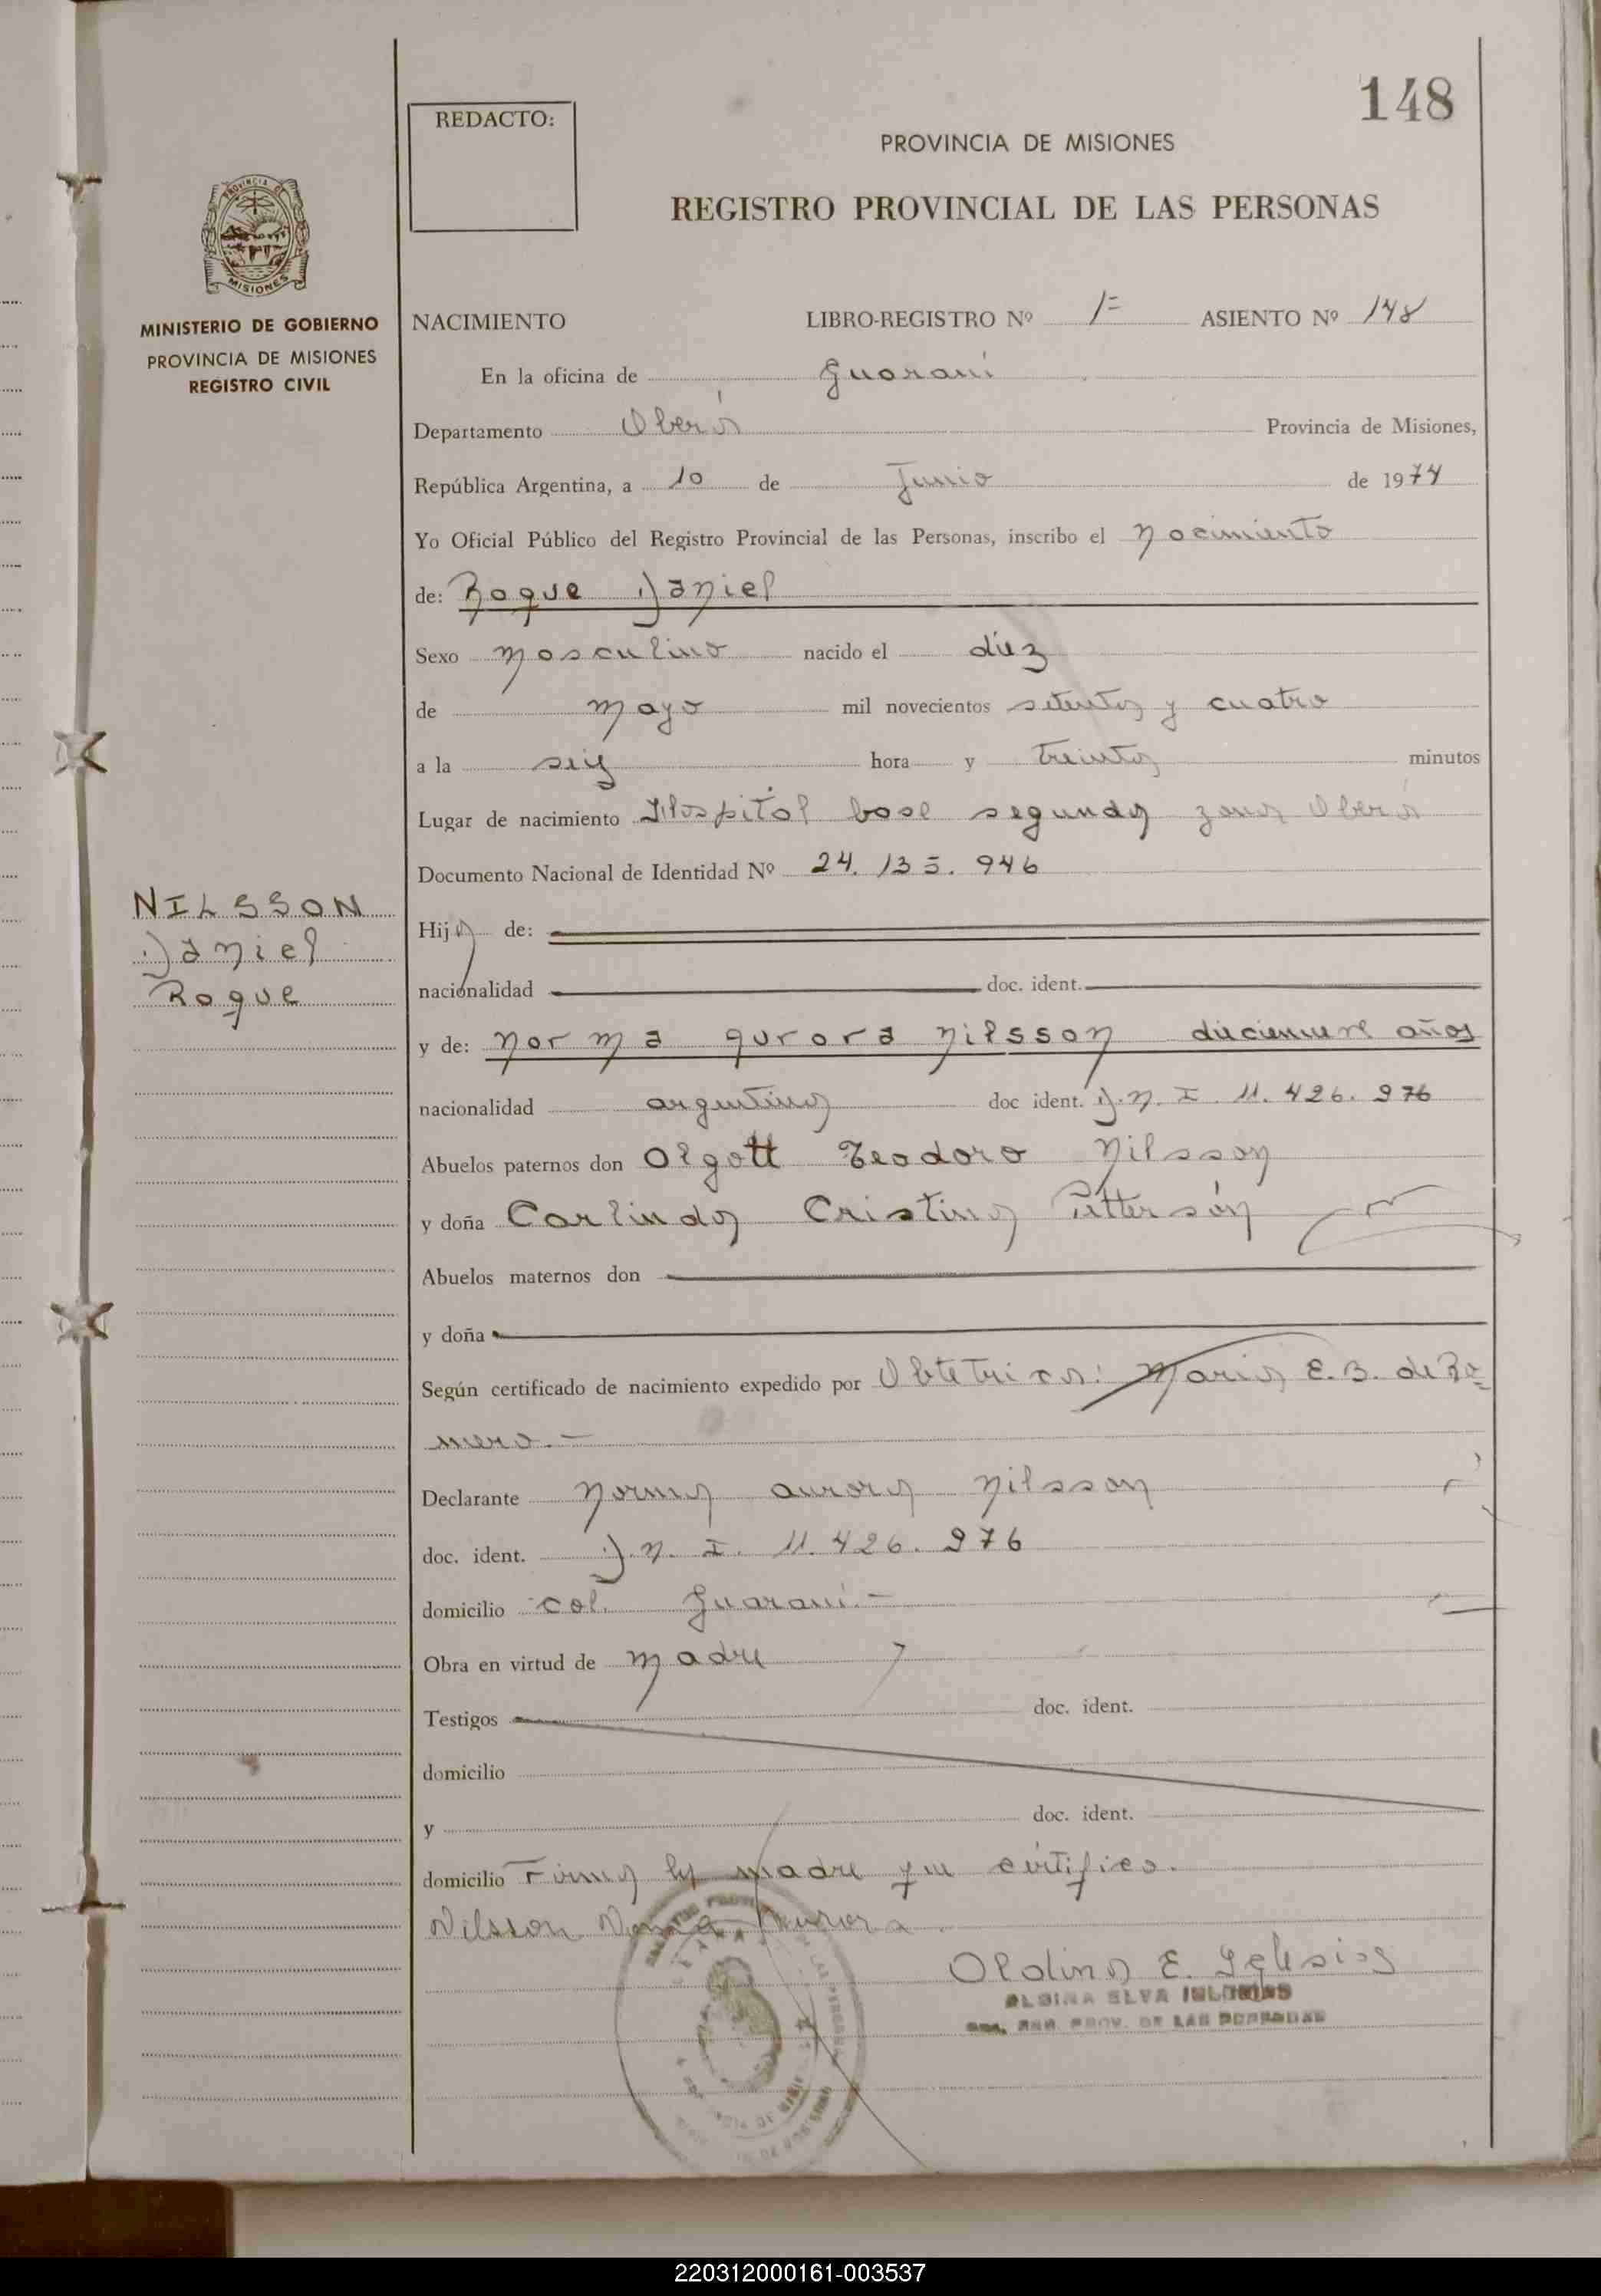 148
REDACTO:
PROVINCIA DE MISIONES
REGISTRO PROVINCIAL DE LAS PERSONAS
PROVINCIA DE
MISIONES
MINISTERIO DE GOBIERNO
PROVINCIA DE MISIONES
REGISTRO CIVIL
NACIMIENTO LIBRO-REGISTRO Nº 1= ASIENTO Nº 148
En la oficina de Guarani
Departamento Oberá Provincia de Misiones,
República Argentina, a 10 de Junio de 1974
Yo Oficial Público del Registro Provincial de las Personas, inscribo el nacimiento
de: Roque Daniel
Sexo masculino nacido el diez
de mayo mil novecientos setenta y cuatro
a la seis hora y treinta minutos
Lugar de nacimiento Hospital base segunda zona Oberá
Documento Nacional de Identidad Nº 24.135.946
NILSSON
Daniel
Roque
Hijo de:
nacionalidad doc. ident.
y de: Norma Aurora Nilsson diecinueve años
nacionalidad argentina doc ident. D.N.I. 11.426.976
Abuelos paternos don Olgott Teodoro Nilsson
y doña Carlinda Cristina Petterson
Abuelos maternos don
y doña
Según certificado de nacimiento expedido por Obtetrica: Maria E.B. de Ro=
mero.-
Declarante Norma Aurora Nilsson
doc. ident. D.N.I. 11.426.976
domicilio col. Guarani.-
Obra en virtud de madre
Testigos doc. ident.
domicilio
y doc. ident.
domicilio Firma la madre que certifico.
Nilsson Norma Aurora
Aldina E. Iglesias
ELVA IGLESIAS
PROV. DE LAS PERSONAS
220312000161-003537